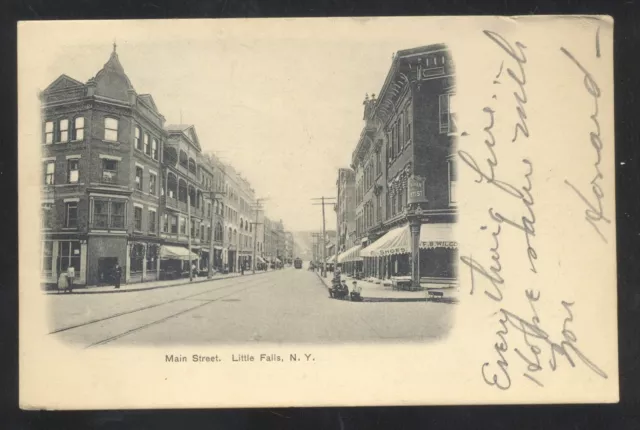 Main Street. Little Falls, N. Y.
Everything fine:-
Hope shine with
You
Howard -